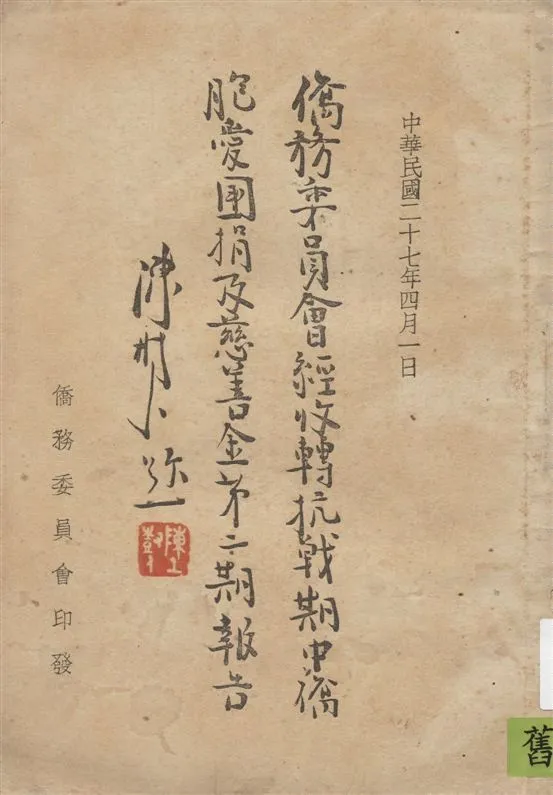 中華民國二十七年四月一日
僑務委員會經收轉抗戰期中僑
胞愛國捐及慈善金第二期報告
陳樹人
僑務委員會印發
舊